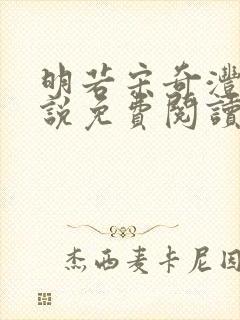 明若宋奇澧
說免費閱讀
杰西麦卡尼因